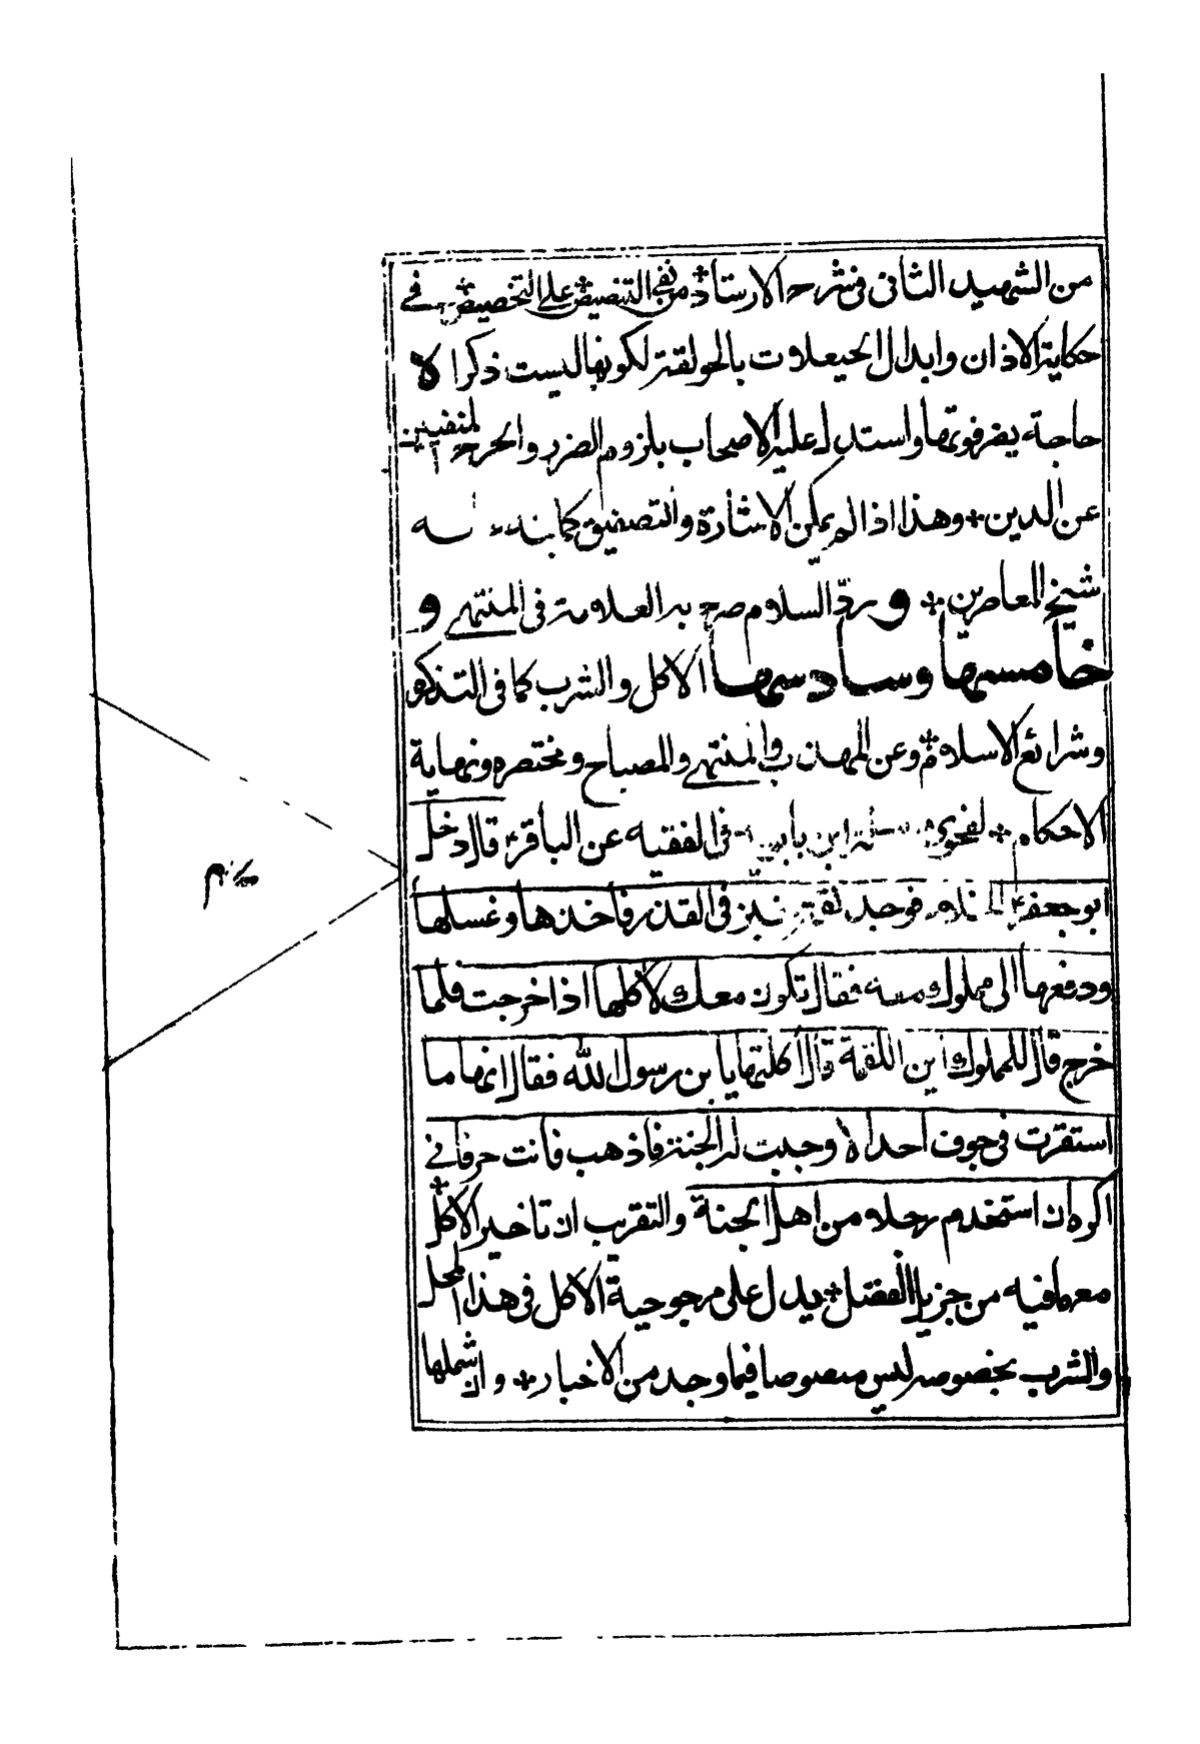 من الشهيد الثاني في شرح الارشاد من نفي التنصيص على التخصيص في
حكاية الاذان وابدال الحيعلات بالحولقة لكونها ليست ذكرا لا
حاجة يضر فوتها واستدل عليه الاصحاب بلزوم الضرر والحرج المنفيين
عن الدين وهذا اذا لم يمكن الاشارة والتصفيق كما
شيخ المعاصرين و ردّ السلام صرح به العلامة في المنتهى و
خامسها وسادسها الاكل والشرب كما في التذكر
وشرائع الاسلام وعن المهذب والمنتهى والمصباح ومختصره ونهاية
الاحكام لفحوى ابن بابويه في الفقيه عن الباقر قال دخل
ابو جعفر الخلاء فوجد لقمة خبز في القذر فاخذها وغسلها
ودفعها الى مملوك معه فقال تكون معك لاكلها اذا خرجت فلما
خرج قال للمملوك اين اللقمة قال اكلتها يا بن رسول الله فقال انها ما
استقرت في جوف احد الا وجبت له الجنة فاذهب فانت حر فاني
اكره ان استخدم رجلا من اهل الجنة والتقريب ان تاخير الاكل
مع ما فيه من جزيل الفضل يدل على مرجوحية الاكل في هذا المحل
والشرب بخصوصه ليس منصوصا فيما وجد من الاخبار وان شملها